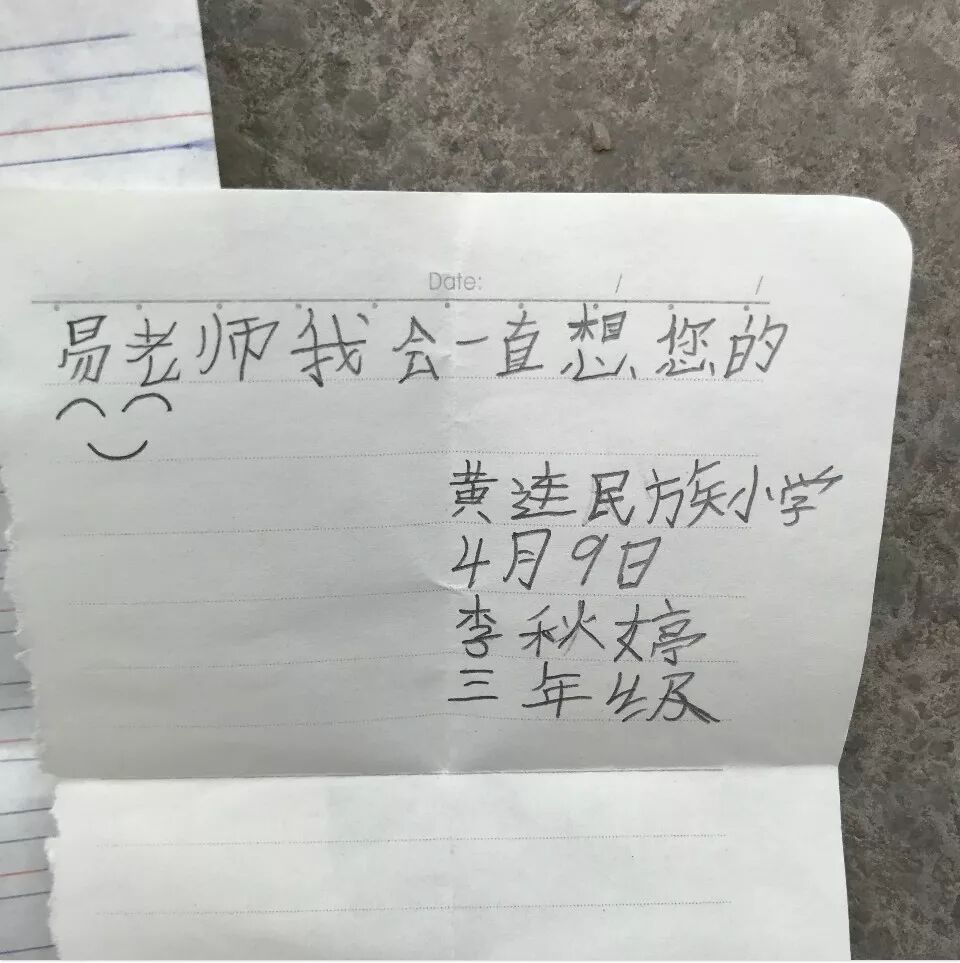 Date: / /
易老师我会一直想您的
黄连民族小学
4月9日
李秋婷
三年级